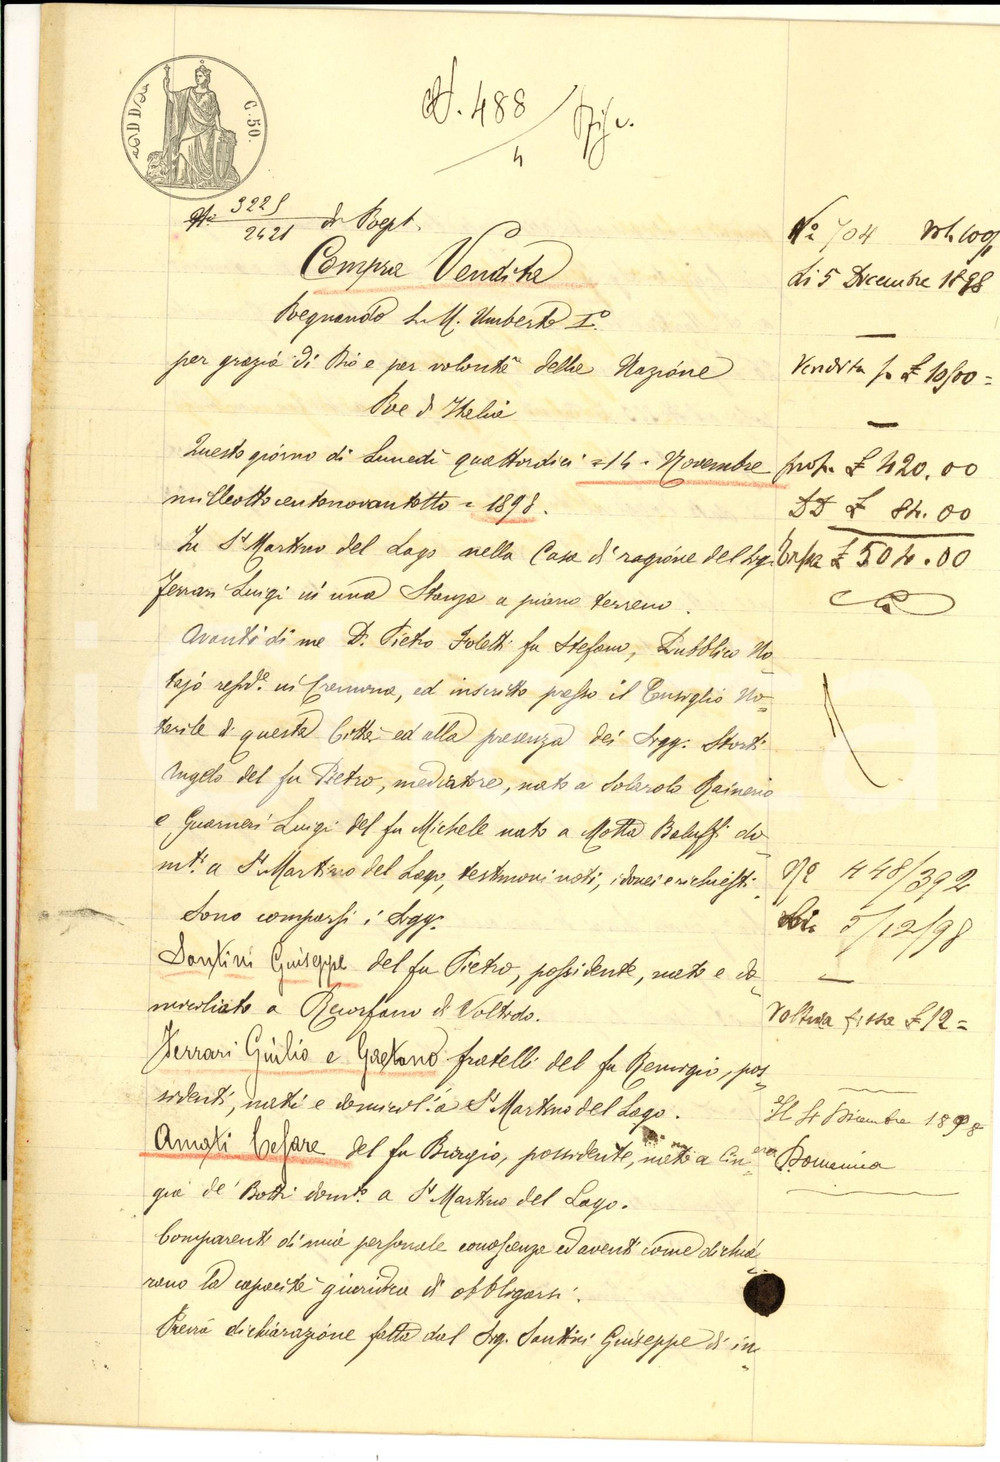 C. 50.
N. 488
4
N. 3225
2421 di Rep.
Compra Vendita
Regnando S. M. Umberto I.º
per grazia di Dio e per volontà della Nazione
Re d'Italia
Questo giorno di Lunedì quattordici = 14 = Novembre
milleottocentonovantotto = 1898.
In S. Martino del Lago nella Casa di ragione del Sig.
Ferrari Luigi in una Stanza a piano terreno.
Avanti di me Dr. Pietro Foletti fu Stefano, Pubblico No-
tajo resid.e in Cremona, ed inscritto presso il Consiglio No-
tarile di questa Città ed alla presenza dei Sigg. Storti
Angelo del fu Pietro, mediatore, nato a Solarolo Rainerio
e Guarneri Luigi del fu Michele nato a Motta Baluffi do-
m.ti a S. Martino del Lago, testimoni noti, idonei e richiesti.
Sono comparsi i Sigg.
Santini Giuseppe del fu Pietro, possidente, nato e do-
miciliato a Recorfano di Voltido.
Ferrari Giulio e Gaetano fratelli del fu Remigio, pos-
sidenti, nati e domicil.i a S. Martino del Lago.
Amati Cesare del fu Biagio, possidente, nato a Cin-
gia de' Botti dom.to a S. Martino del Lago.
Comparenti di mia personale conoscenza ed aventi come dichia-
rano la capacità giuridica di obbligarsi.
Previa dichiarazione fatta dal Sig. Santini Giuseppe di in-
Nº 704
li 5 Dicembre 1898
Vendita p. £ 10500 =
prop. £ 420.00
DD £ 84.00
£ 504.00
Nº 448/392
5/12/98
Voltura fissa £ 12 =
Il 4 Dicembre 1898
era Domenica